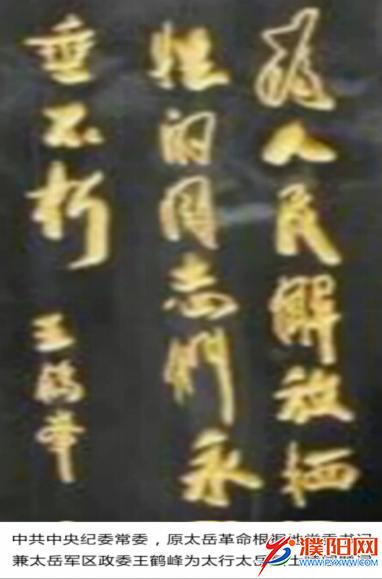 為人民解放牺
牲的同志們永
垂不朽 王鶴峯
中共中央纪委常委，原太岳革命根据地
兼太岳军区政委王鹤峰为太行太岳
濮阳网